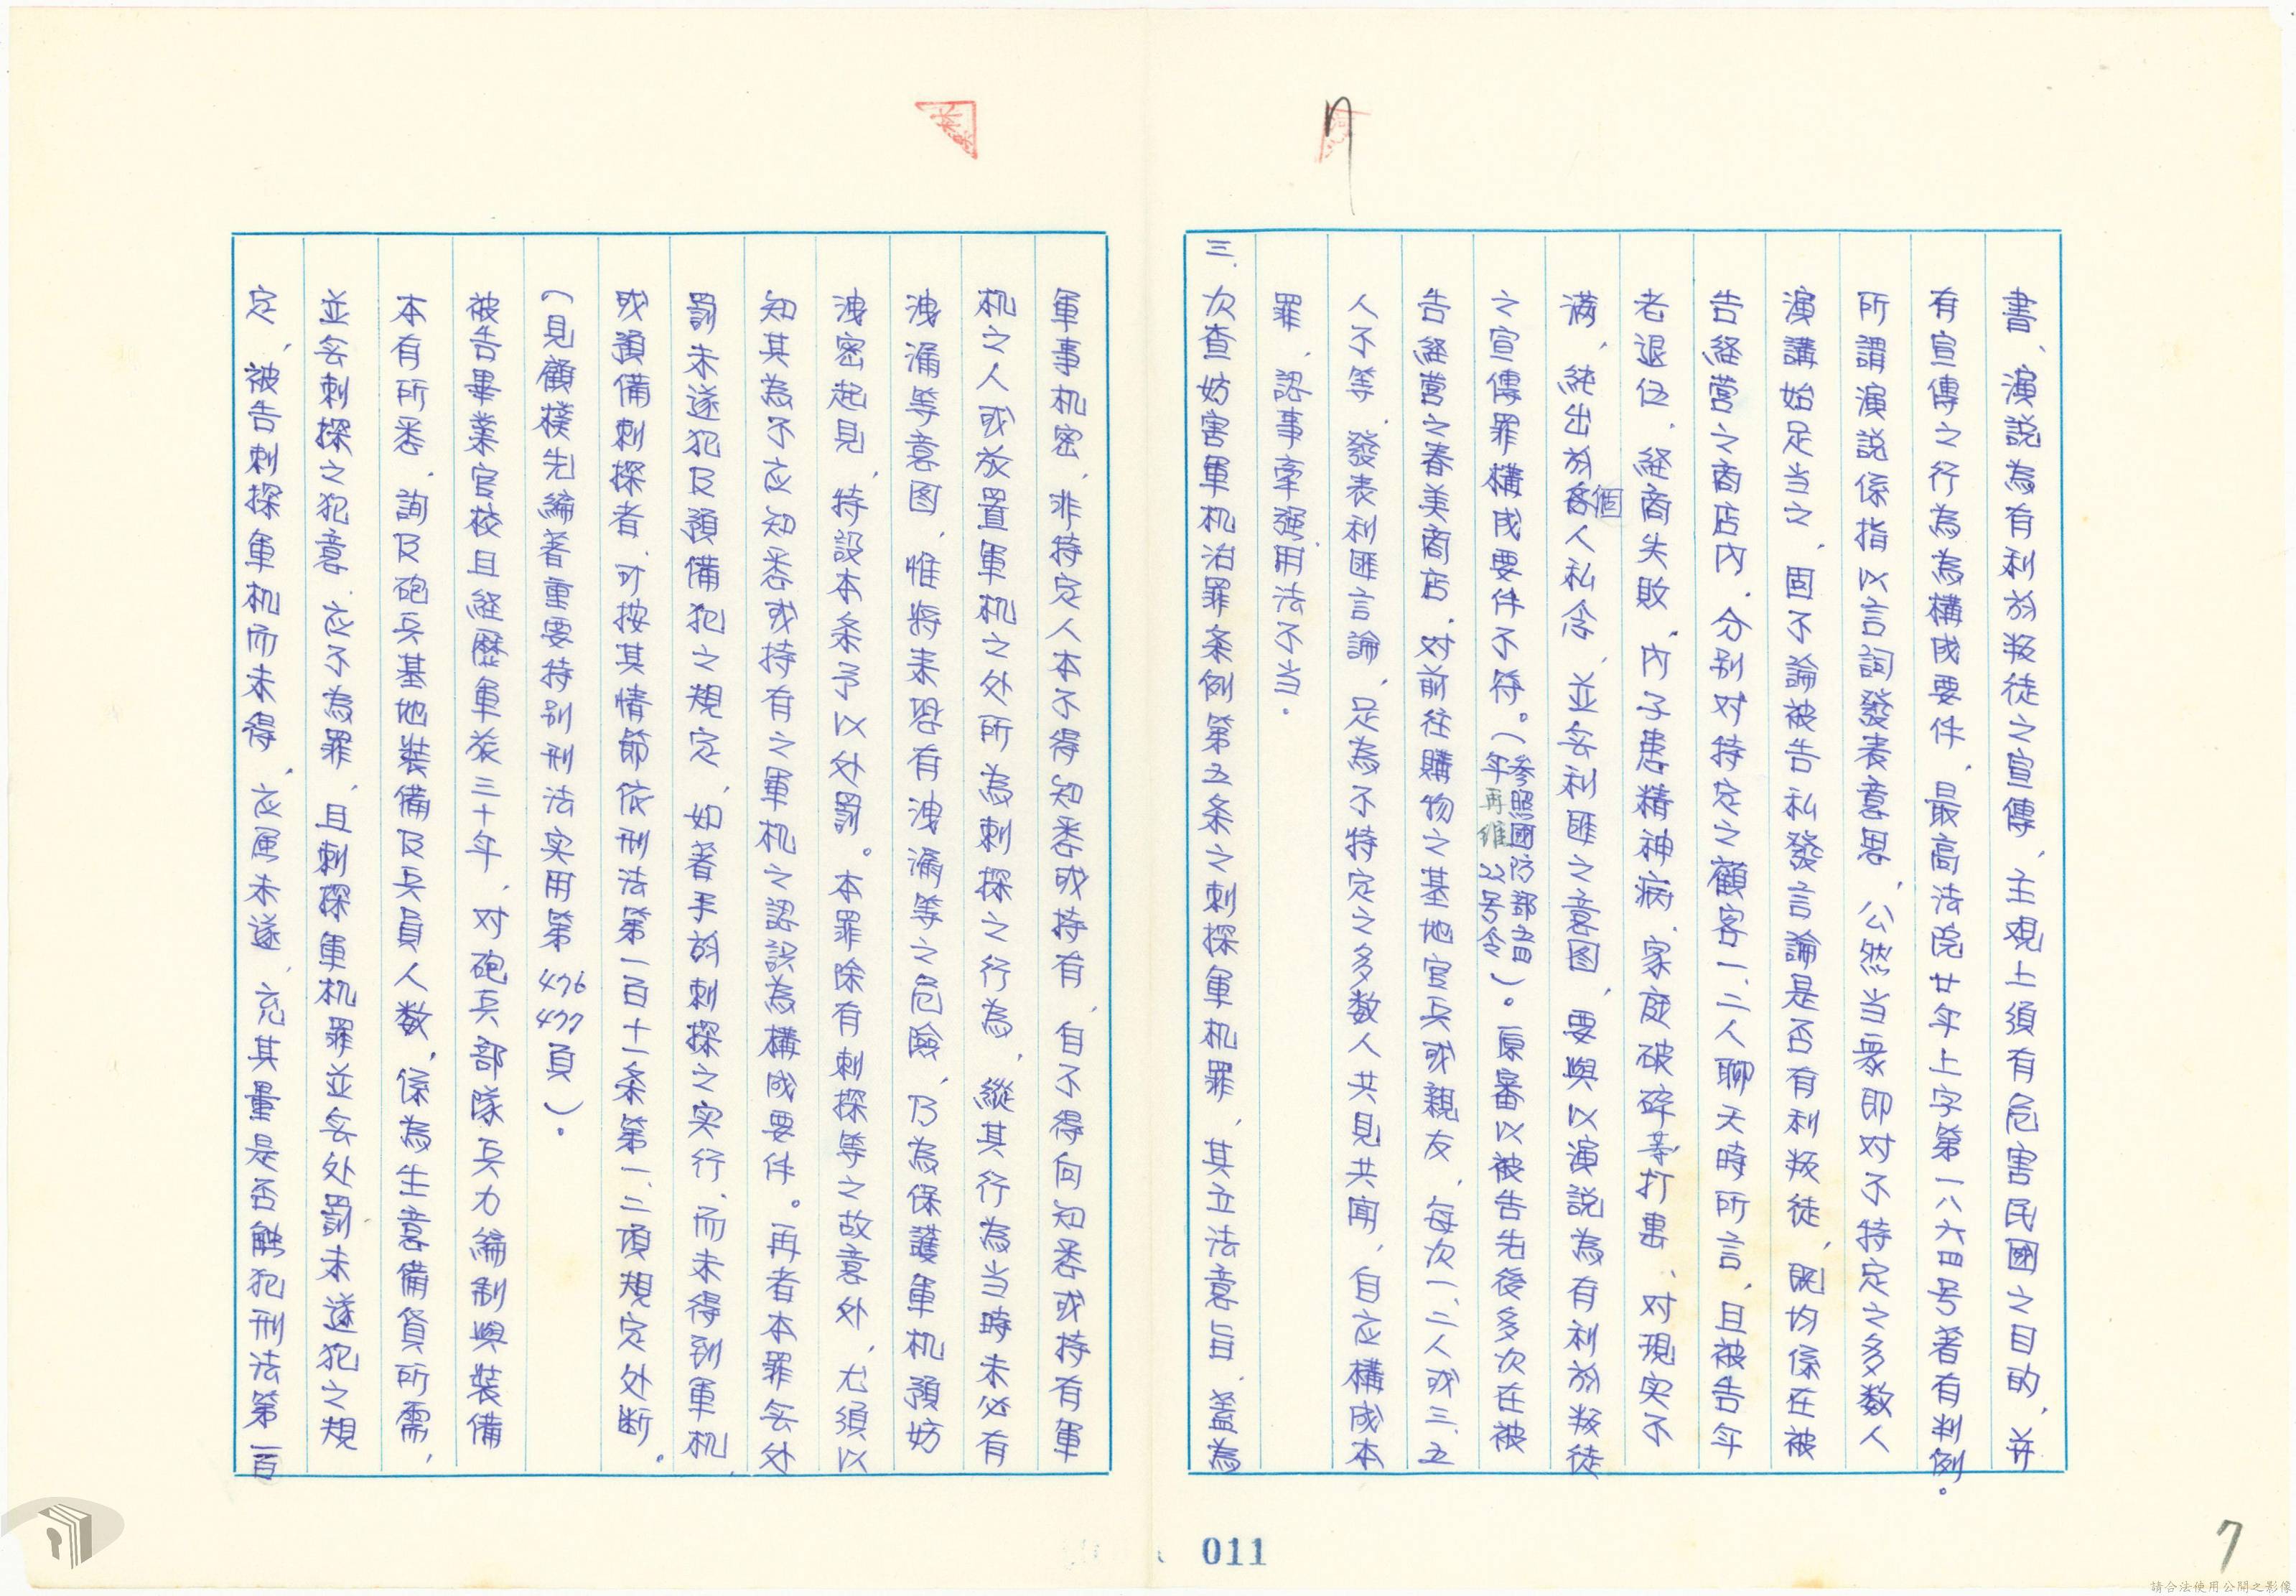 書、演説為有利於叛徒之宣傳、主観上須有危害民國之目的、並
有宣傳之行為為構成要件、最高法院廿年上字第一八六四号著有判例。
所謂演説係指以言詞發表意思、公然当衆即対不特定之多数人
演講始足当之、固不論被告私發言論是否有利叛徒、既均係在被
告経营之商店内、分别对特定之顧客一、二人聊天時所言、且被告年
老退伍、経商失敗、内子患精神病、家庭破碎等打击、对現实不
满、純出於個人私念、並无利匪之意图、要與以演説為有利於叛徒
之宣傳罪構成要件不符。(参照國防部
年再維　号令)。原審以被告先後多次在被
告経营之春美商店、对前往購物之基地官兵或親友、每次一、二人或三、五
人不等、發表利匪言論、足為不特定之多数人共見共闻、自应構成本
罪、認事牽强、用法不当。
三、次查妨害軍机治罪条例第五条之刺探軍机罪、其立法意旨、蓋為
軍事机密、非特定人本不得知悉或持有、自不得向知悉或持有軍
机之人或放置軍机之处所為刺探之行為、縱其行為当時未必有
洩漏等意图、惟将来恐有洩漏等之危險、乃為保護軍机預妨
洩密起見、特設本条予以处罰。本罪除有刺探等之故意外、尤須以
知其為不应知悉或持有之軍机之認識為構成要件。再者本罪无处
罰未遂犯及預備犯之規定、如著手於刺探之实行、而未得到軍机、
或預備刺探者、可按其情節依刑法第一百十一条第一、二項規定处断。
(見顧樸先編著重要特别刑法实用第476
477頁)。
被告畢業官校且経歷軍旅三十年、对砲兵部隊兵力編制與装備
本有所悉、詢及砲兵基地裝備及兵員人数、係為生意備貨所需、
並无刺探之犯意、应不為罪、且刺探軍机罪並无处罰未遂犯之規
定、被告刺探軍机而未得、应属未遂、充其量是否触犯刑法第一百
011
7
7
請合法使用公開之影像